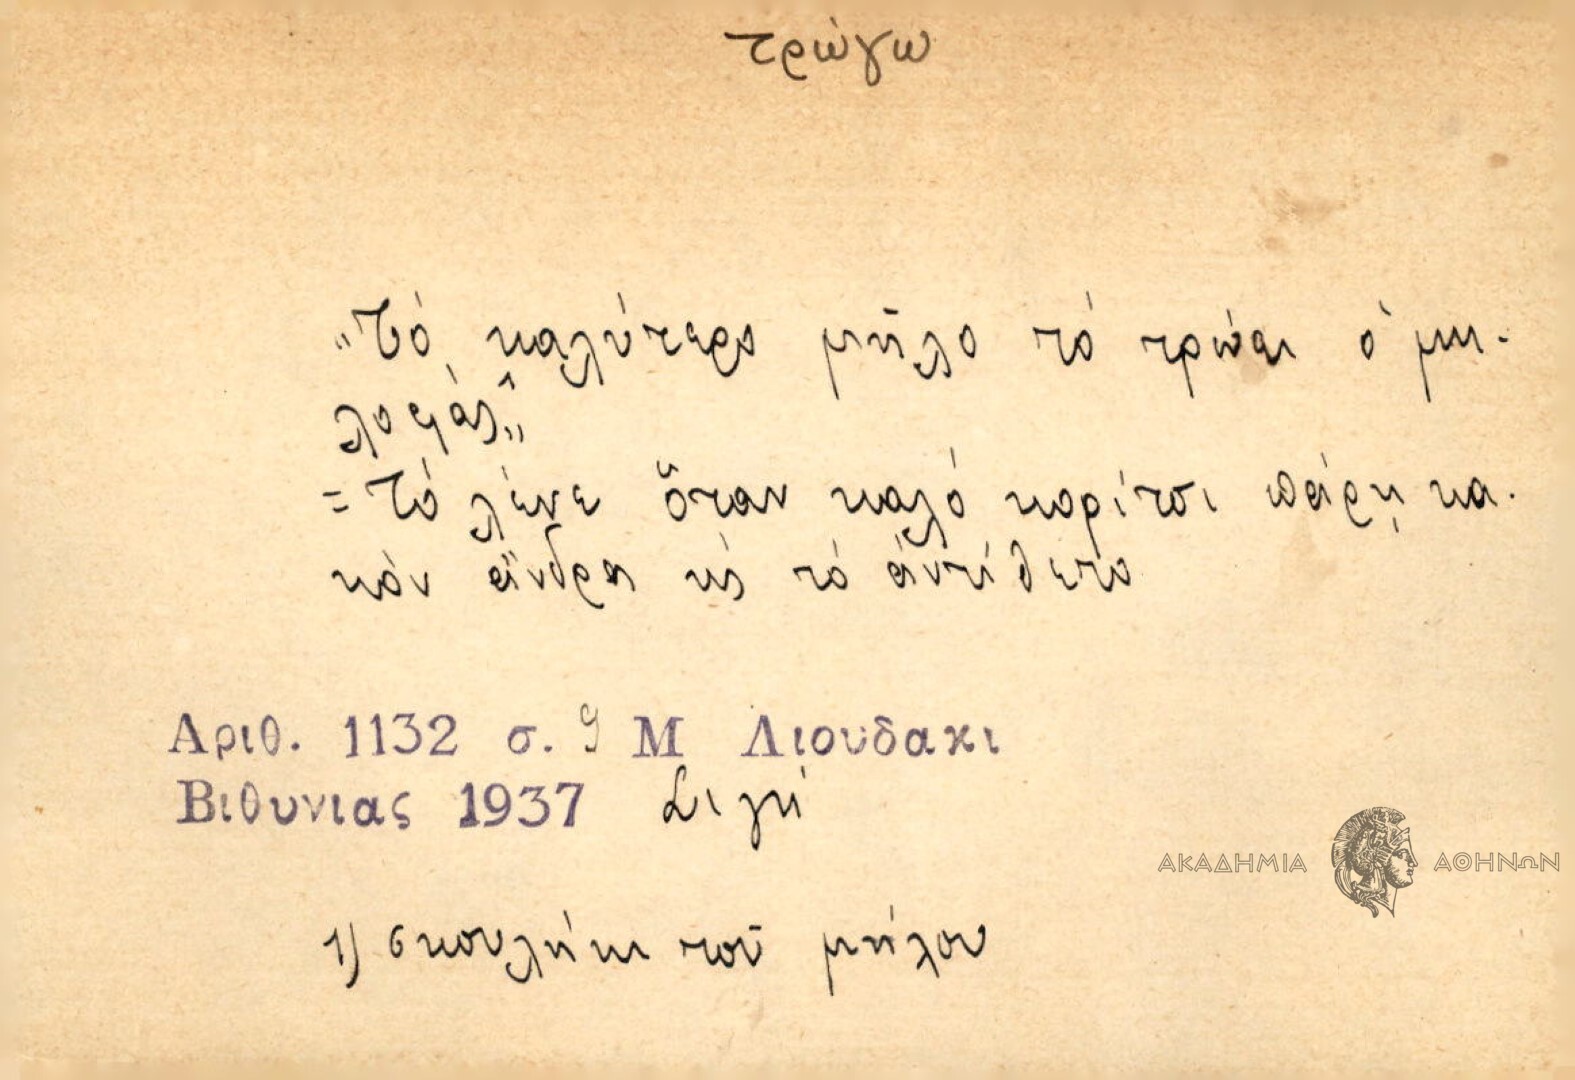 τρώγω
„Τό καλύτερο μῆλο τό τρώει ὁ μη-
λοφάς¹"
= Τό λένε ὅταν καλό κορίτσι πάρῃ κα-
κόν ἄνδρα κι τό ἀντίθετο
Αριθ. 1132 σ. 9 Μ Λιουδακι
Βιθυνιας 1937 Σιγή
ΑΚΑΔΗΜΙΑ ΑΘΗΝΩΝ
1) σκουλήκι τοῦ μήλου